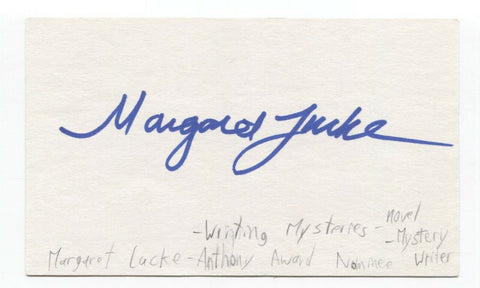 Margaret Lucke
-Writing Mysteries- novel
-Mystery
Margaret Lucke-Anthony Award Nominee Writer